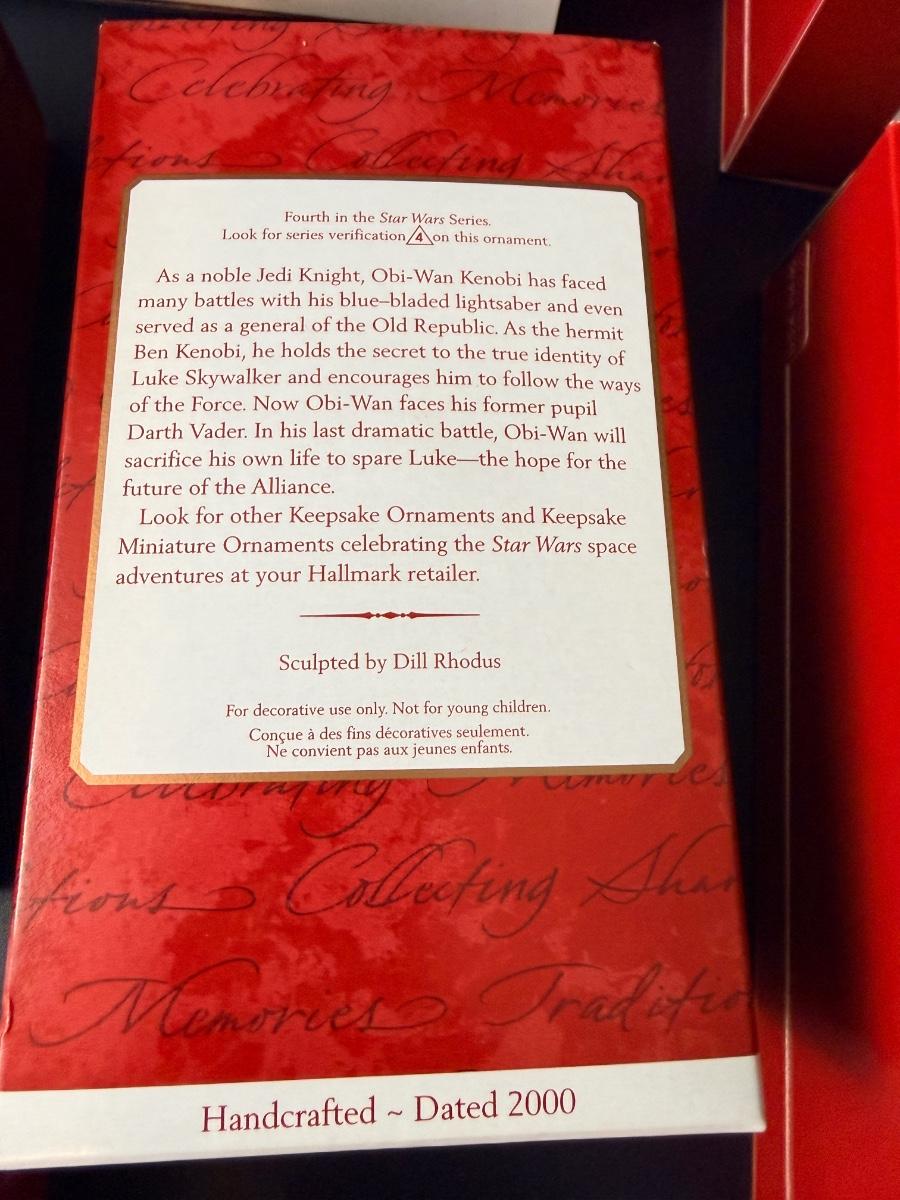 Celebrating Memories
Collecting
Fourth in the Star Wars Series.
Look for series verification 4 on this ornament.
As a noble Jedi Knight, Obi-Wan Kenobi has faced
many battles with his blue–bladed lightsaber and even
served as a general of the Old Republic. As the hermit
Ben Kenobi, he holds the secret to the true identity of
Luke Skywalker and encourages him to follow the ways
of the Force. Now Obi-Wan faces his former pupil
Darth Vader. In his last dramatic battle, Obi-Wan will
sacrifice his own life to spare Luke—the hope for the
future of the Alliance.
Look for other Keepsake Ornaments and Keepsake
Miniature Ornaments celebrating the Star Wars space
adventures at your Hallmark retailer.
Sculpted by Dill Rhodus
For decorative use only. Not for young children.
Conçue à des fins décoratives seulement.
Ne convient pas aux jeunes enfants.
Celebrating Memories
Collecting
Memories
Handcrafted ~ Dated 2000